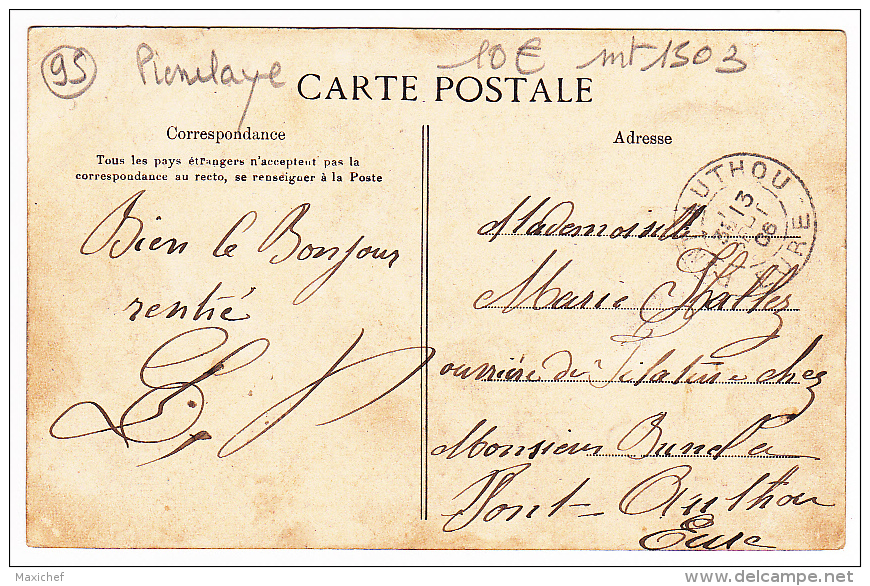 95 Pierrelaye 10E mt 1503
CARTE POSTALE
Correspondance
Tous les pays étrangers n'acceptent pas la
correspondance au recto, se renseigner à la Poste
Bien le Bonjour
rentré
Adresse
AUTHOU
13
06
EURE
Mademoiselle
Marie
ouvrière de Filature chez
Monsieur
Pont-Authou
Eure
Maxichef
www.delcampe.net